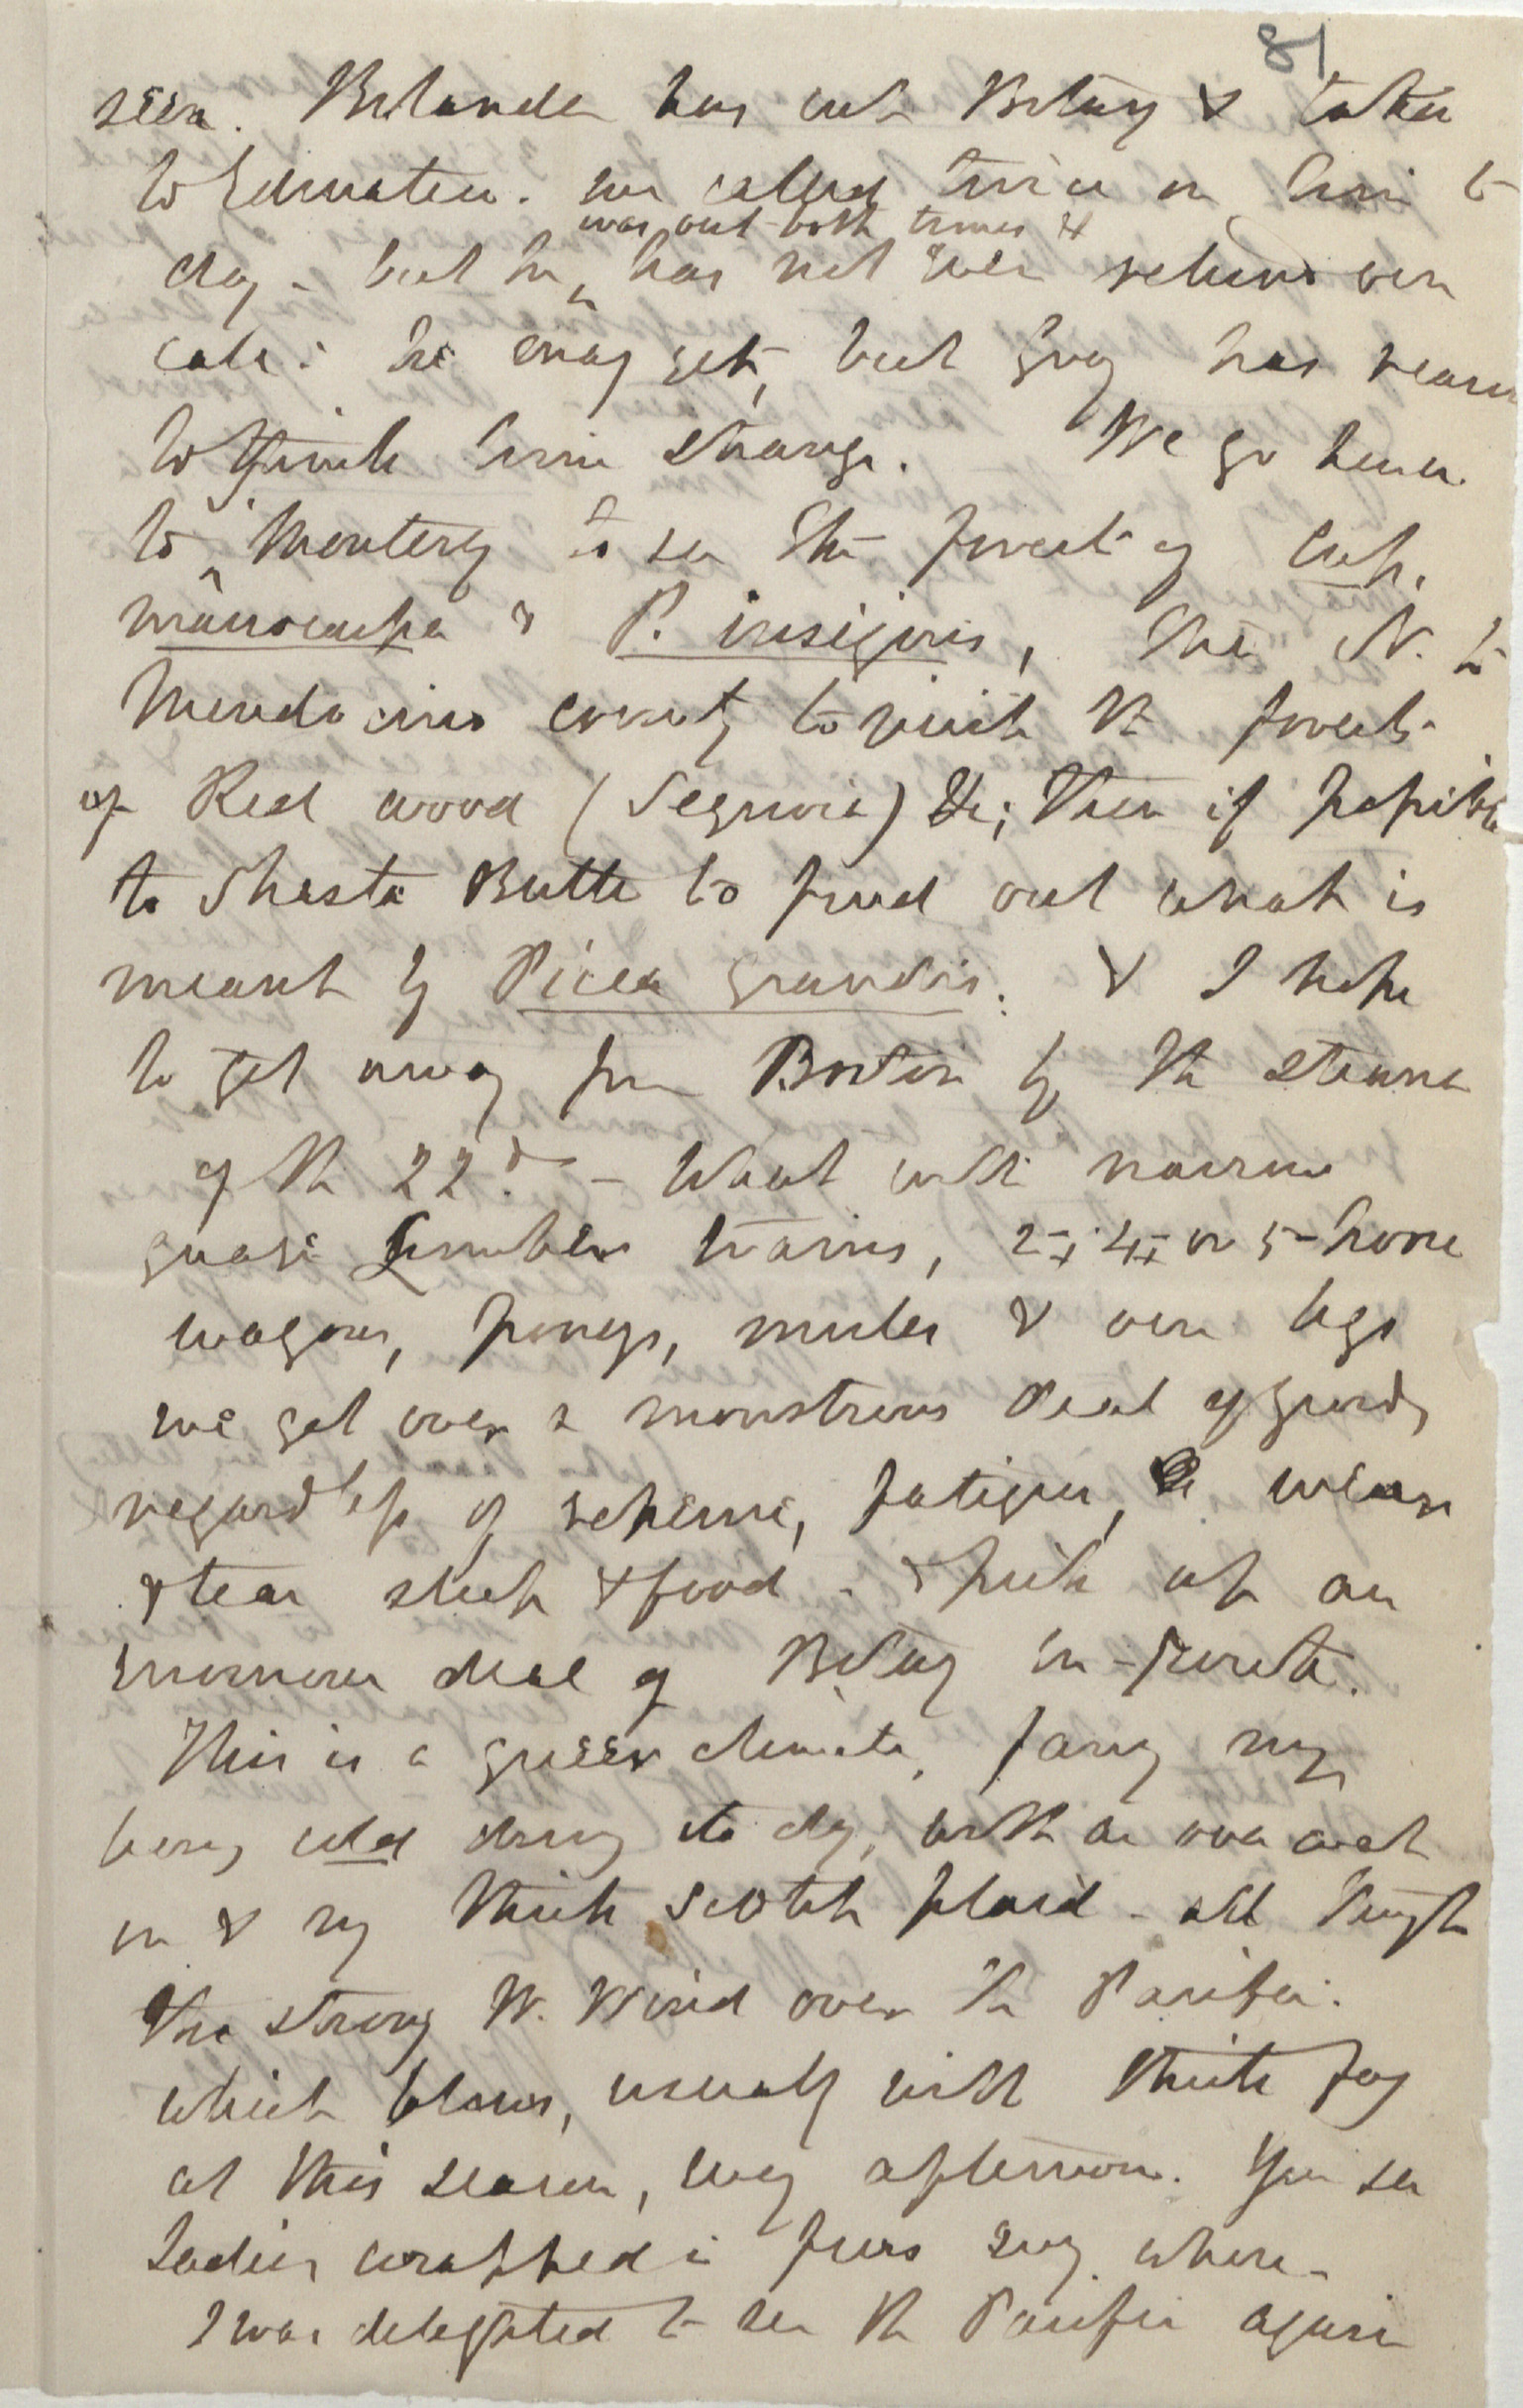 81
seen. Bolander has cut Botany & taken
to Education. we called twice on him to
was out both times &
day – but he ^ has not even returned our
call: he may yet, but Gray has reason
to think him strange. We go hence
to ^ Monterey to see the forest of Cup.
macrocarpa & P. insignis, then N. to
Mendocino county to visit the forests
of Red wood (Sequoia) &c; then if possible
to Shasta Butte to find out what is
meant by Picea grandis. & I hope
to get away from Boston by the steamer
of the 22d. – What with narrow
guage Lumber trains, 2-, 4-, or 5-horse
wagons, poneys, mules & our legs
we get over a monstrous deal of ground,
regardless of scheme, fatigue, wear
& tear sleep & food – & pick up an
enormous deal of Botany en-route.
This is a queer climate, fancy my
being cold driving to day, with an over coat
on & my thick Scotch plaid – all through
the strong W. Wind over the Pacific.
which blows, usually with thick fog
at this season, every afternoon. You see
Ladies wrapped in furs every where –
I was delighted to see the Pacific again